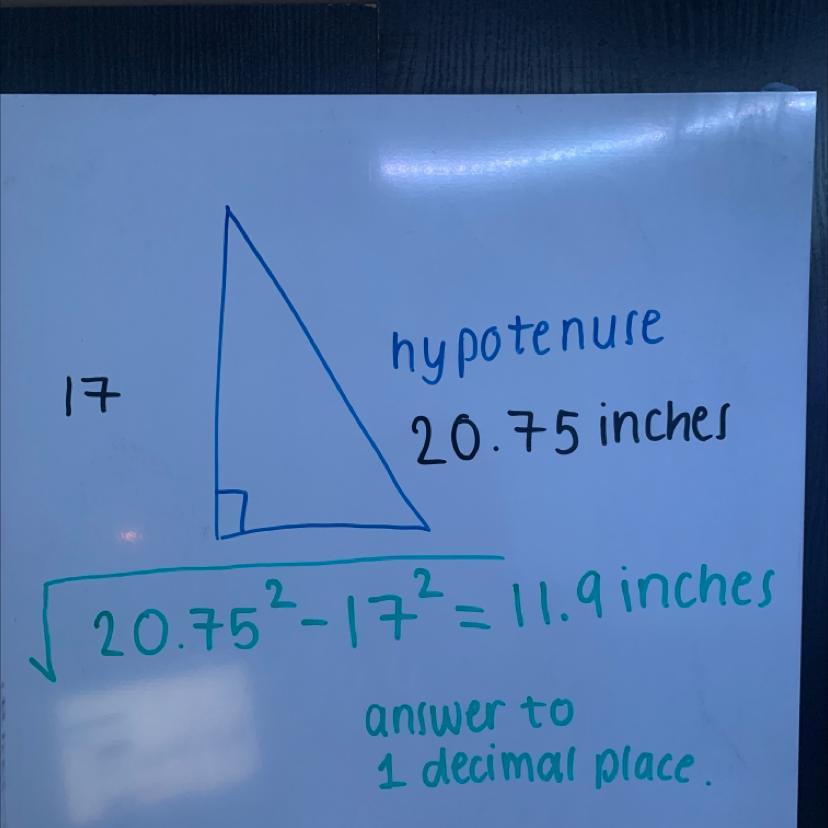 17
hypotenuse
20.75 inches
√20.75² - 17² = 11.9 inches
answer to
1 decimal place.